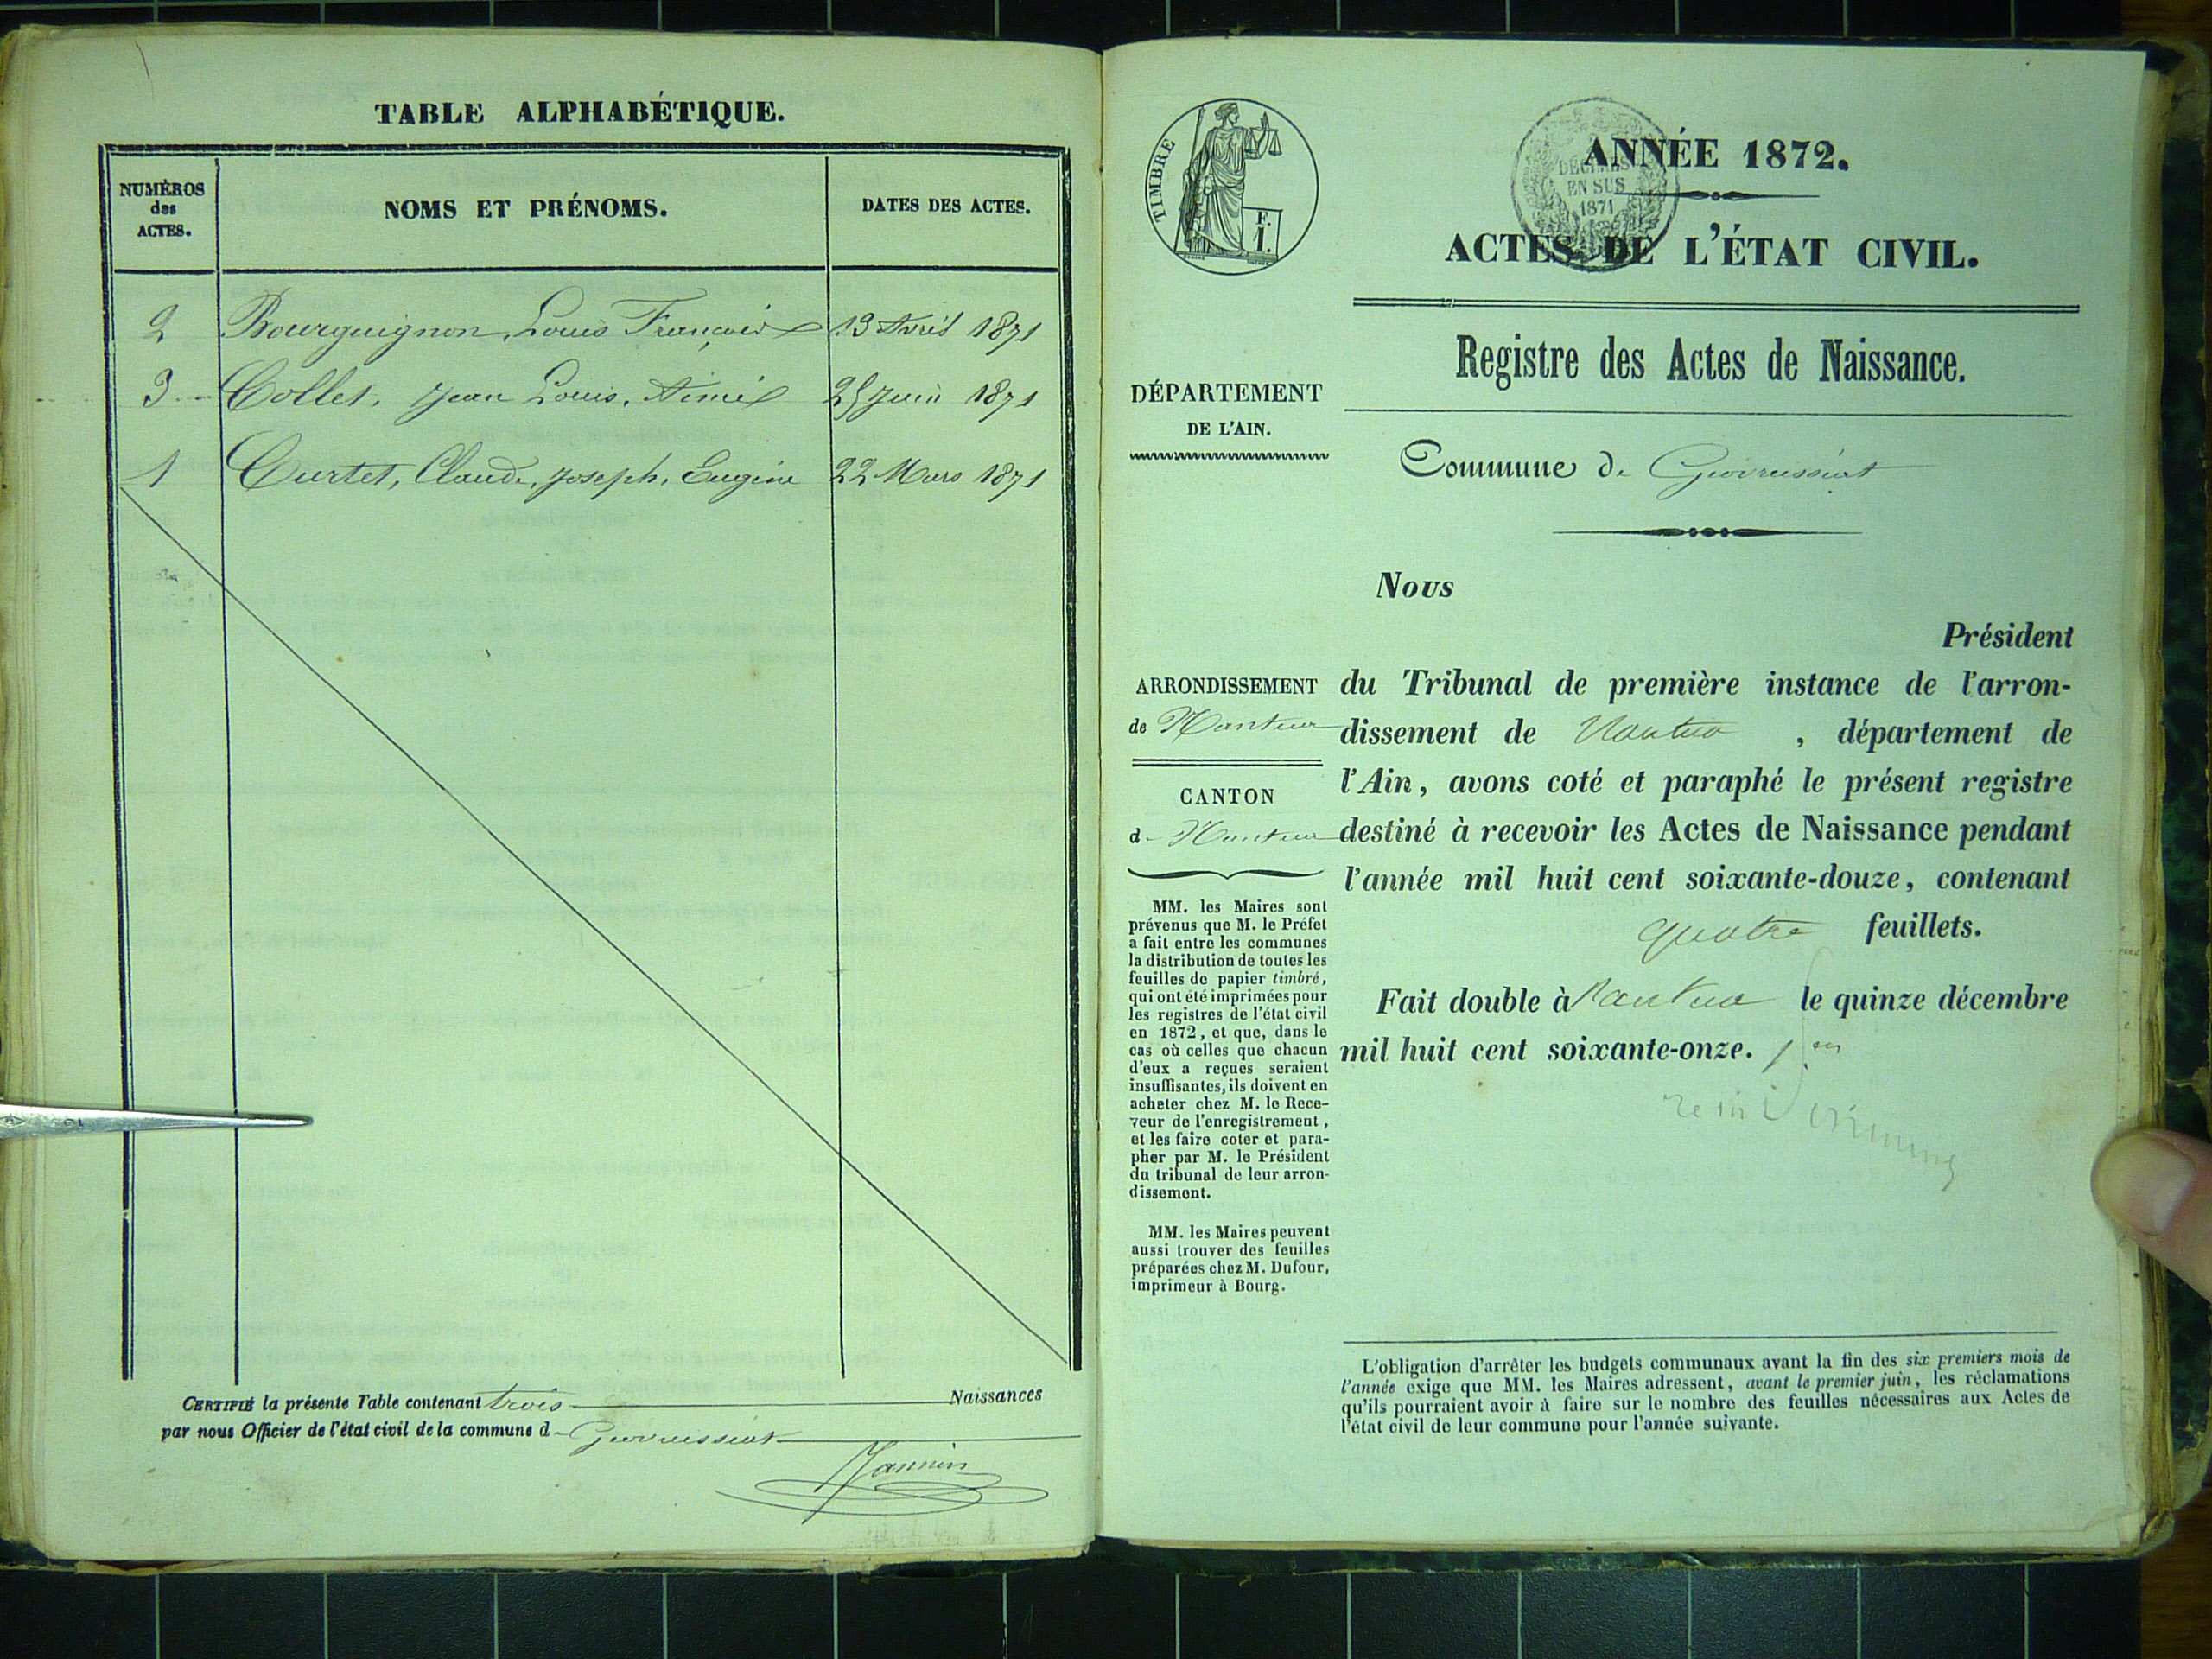 TABLE ALPHABÉTIQUE.
NUMÉROS
des
ACTES.
NOMS ET PRÉNOMS.
DATES DES ACTES.
2 Bourguignon, Louis François 13 Avril 1871
3 Collet, Jean Louis, Aimé 25 Juin 1871
1 Curtet, Claude, Joseph, Eugène 22 Mars 1871
CERTIFIÉ la présente Table contenant trois Naissances
par nous Officier de l'état civil de la commune d Giovreissiat
TIMBRE
F.
1.
DÉCIMES
EN SUS
1871
ANNÉE 1872.
ACTES DE L'ÉTAT CIVIL.
Registre des Actes de Naissance.
DÉPARTEMENT
DE L'AIN.
Commune de Giovreissiat
ARRONDISSEMENT
de Nantua
CANTON
de Nantua
MM. les Maires sont
prévenus que M. le Préfet
a fait entre les communes
la distribution de toutes les
feuilles de papier timbré,
qui ont été imprimées pour
les registres de l'état civil
en 1872, et que, dans le
cas où celles que chacun
d'eux a reçues seraient
insuffisantes, ils doivent en
acheter chez M. le Rece-
veur de l'enregistrement,
et les faire coter et para-
pher par M. le Président
du tribunal de leur arron-
dissement.
MM. les Maires peuvent
aussi trouver des feuilles
préparées chez M. Dufour,
imprimeur à Bourg.
Nous
Président
du Tribunal de première instance de l'arron-
dissement de Nantua , département de
l'Ain, avons coté et paraphé le présent registre
destiné à recevoir les Actes de Naissance pendant
l'année mil huit cent soixante-douze, contenant
quatre feuillets.
Fait double à Nantua le quinze décembre
mil huit cent soixante-onze.
L'obligation d'arrêter les budgets communaux avant la fin des six premiers mois de
l'année exige que MM. les Maires adressent, avant le premier juin, les réclamations
qu'ils pourraient avoir à faire sur le nombre des feuilles nécessaires aux Actes de
l'état civil de leur commune pour l'année suivante.